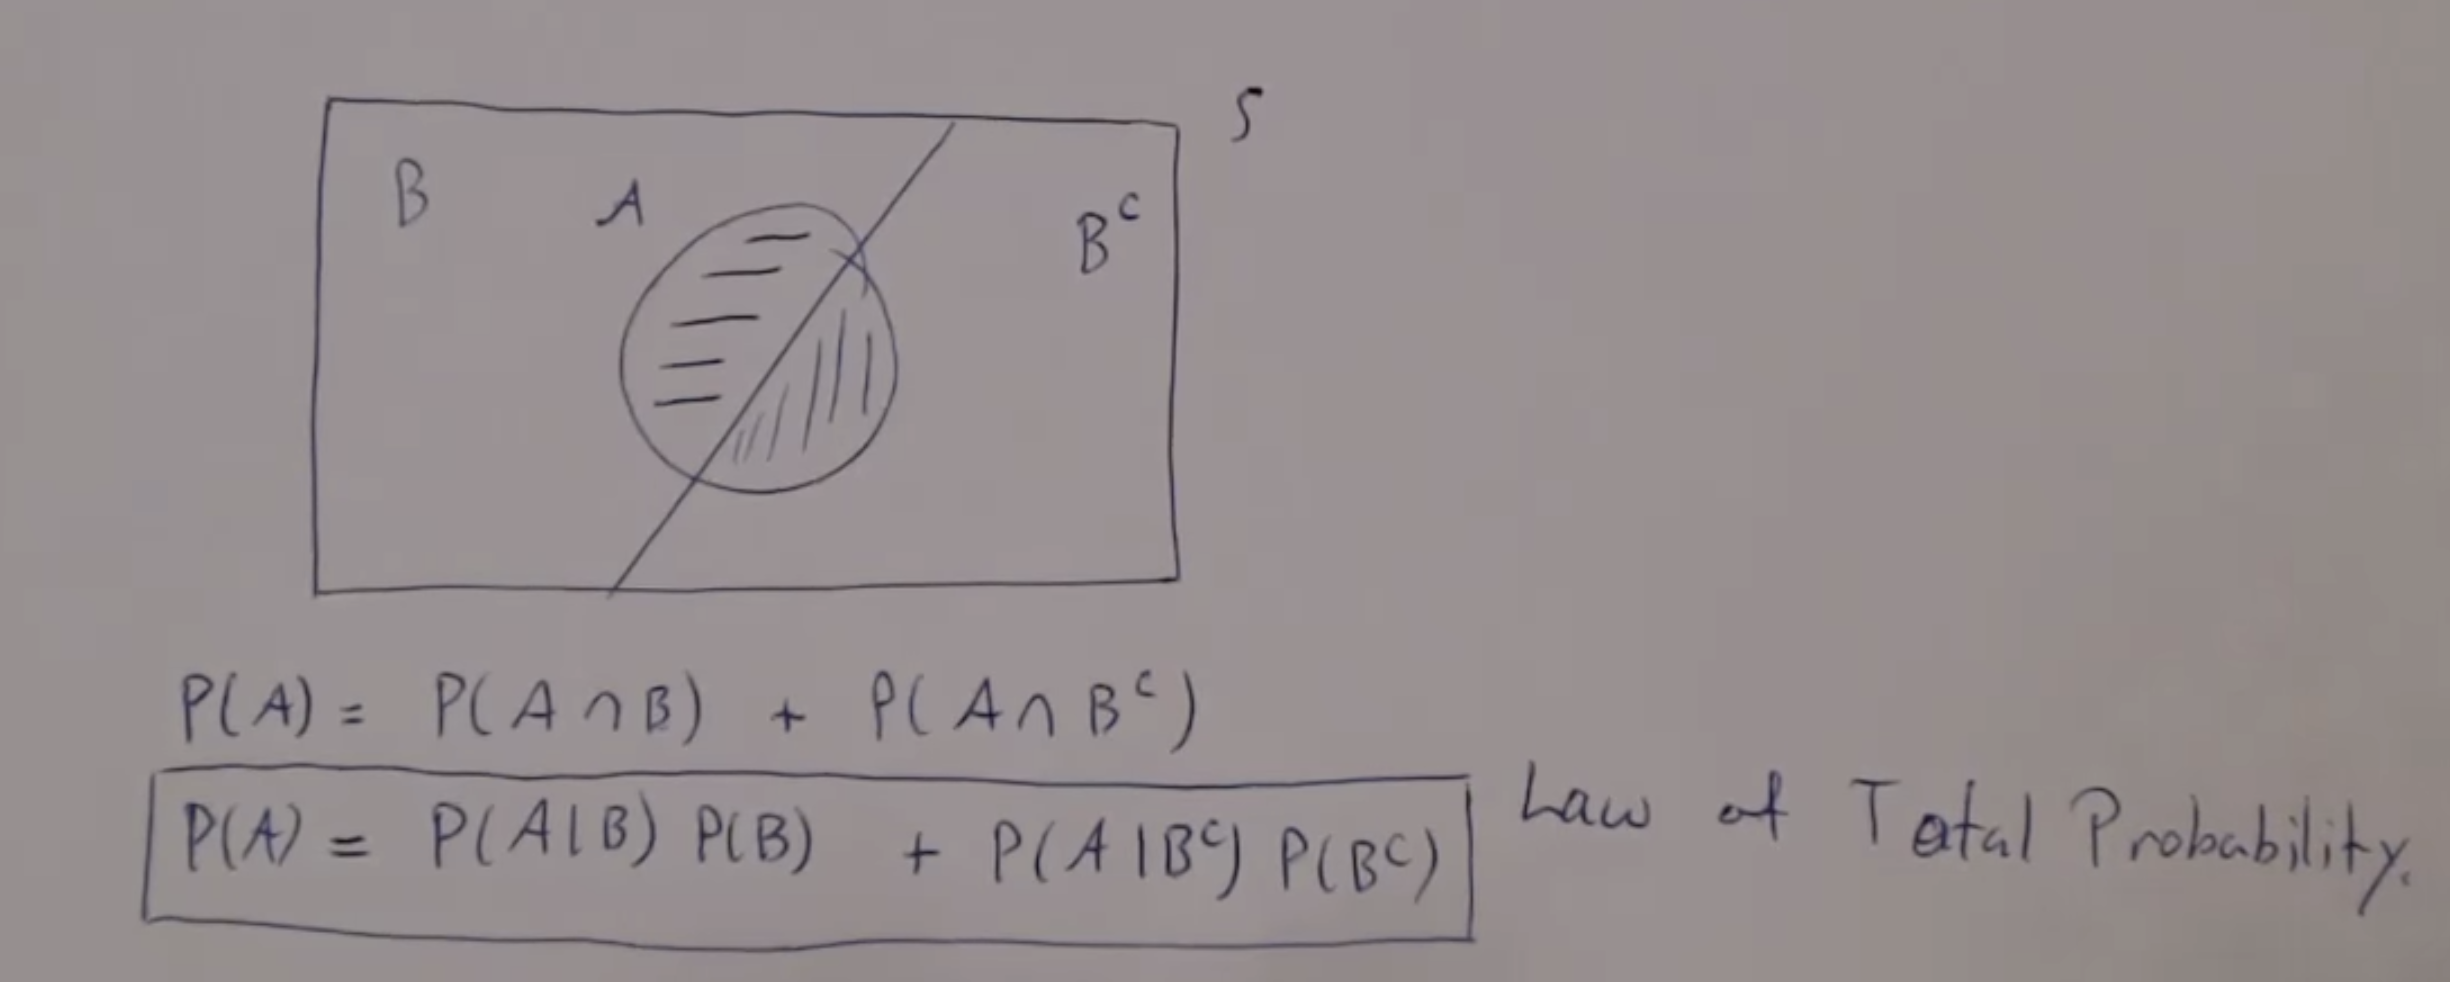 S
B
A
Bᶜ
P(A) = P(A ∩ B) + P(A ∩ Bᶜ)
P(A) = P(A|B) P(B) + P(A|Bᶜ) P(Bᶜ)
Law of Total Probability.